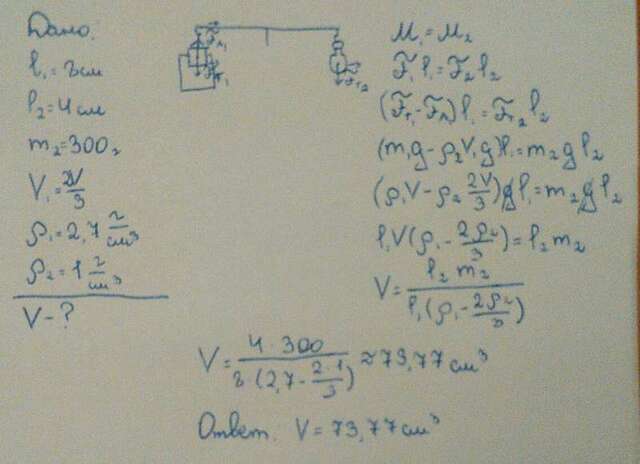 Дано:
l₁=8см
l₂=4см
m₂=300г
V₁=2V/3
ρ₁=2,7 г/см³
ρ₂=1 г/см³
V-?
F_A₁
F_т₁
F_т₂
M₁=M₂
F₁l₁=F₂l₂
(F_т₁-F_A₁)l₁=F_т₂l₂
(m₁g-ρ₂V₁g)l₁=m₂gl₂
(ρ₁V-ρ₂ 2V/3)gl₁=m₂gl₂
l₁V(ρ₁-2ρ₂/3)=l₂m₂
V=l₂m₂/l₁(ρ₁-2ρ₂/3)
V=4·300/8·(2,7-2·1/3)≈73,77см³
Ответ. V=73,77см³